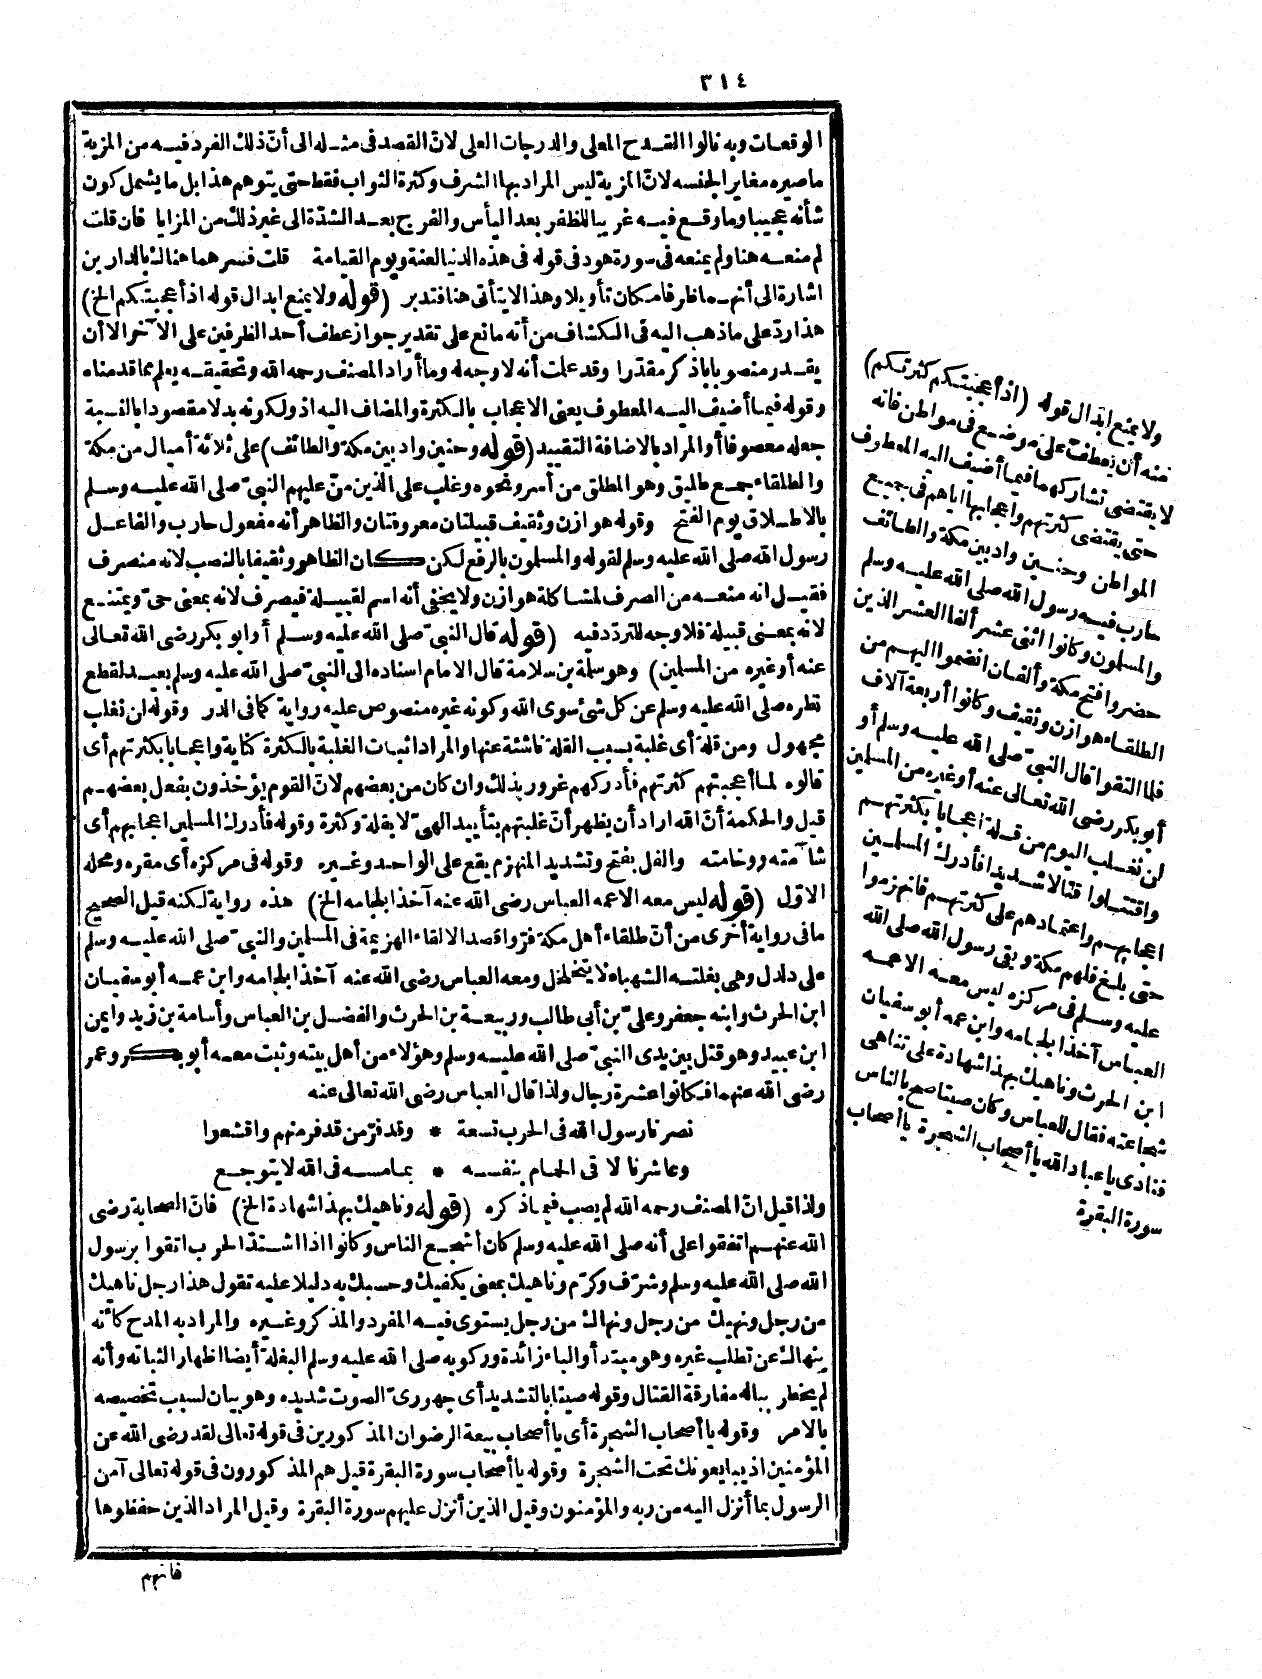 ٣١٤
الوقعات وبه نالوا القدح المعلى والدرجات العلى لانّ القصد فى مثله الى أنّ ذلك الفرد فيه من المزية
ما صيره مغايرا لجنسه لانّ المزية ليس المراد بها الشرف وكثرة الثواب فقط حتى يتوهم هذا بل ما يشمل كون
شأنه عجيبا وما وقع فيه غريبا للظفر بعد اليأس والفرج بعد الشدّة الى غير ذلك من المزايا فان قلت
لم منعه هنا ولم يمنعه فى سورة هود فى قوله فى هذه الدنيا لعنة ويوم القيامة قلت فسرهما هنالك بالدارين
اشارة الى أنهما ظرفا مكان تأويلا وهذا لا يتأتى هنا فتدبر (قوله ولا يمنع ابدال قوله اذ أعجبتكم الخ)
هذا ردّ على ما ذهب اليه فى الكشاف من أنه مانع على تقدير جواز عطف أحد الظرفين على الآخر الا أن
يقدر منصوبا باذكر مقدّرا وقد علمت أنه لا وجه له وما أراد المصنف رحمه الله وتحقيقه يعلم مما قدمناه
وقوله فيما أضيف اليه المعطوف يعنى الاعجاب بالكثرة والمضاف اليه اذ ولكونه بدلا مقصودا بالنسبة
جعله معصوفا أو المراد بالاضافة التقييد (قوله وحنين واد بين مكة والطائف) على ثلاثة أميال من مكة
والطلقاء جمع طليق وهو المطلق من أسر ونحوه وغلب على الذين منّ عليهم النبىّ صلى الله عليه وسلم
بالاطلاق يوم الفتح وقوله هوازن وثقيف قبيلتان معروفتان والظاهر أنه مفعول حارب والفاعل
رسول الله صلى الله عليه وسلم لقوله والمسلمون بالرفع لكن كان الظاهر وثقيفا بالنصب لانه منصرف
فقيل انه منعه من الصرف لمشاكلة هوازن ولا يخفى أنه اسم لقبيلة فيصرف لانه بمعنى حىّ ويمتنع
لانه بمعنى قبيلة فلا وجه للتردّد فيه (قوله قال النبىّ صلى الله عليه وسلم أو أبو بكر رضى الله تعالى
عنه أو غيره من المسلمين) وهو سلمة بن سلامة قال الامام اسناده الى النبىّ صلى الله عليه وسلم بعيد لقطع
نظره صلى الله عليه وسلم عن كل شئ سوى الله وكونه غيره منصوص عليه رواية كما فى الدر وقوله ان نغلب
مجهول ومن قلة أى غلبة بسبب القلة ناشئة عنها والمراد اثبات الغلبة بالكثرة كناية واعجابا بكثرتهم أى
قالوه لما أعجبتهم كثرتهم فأدركهم غرور بذلك وان كان من بعضهم لانّ القوم يؤخذون بفعل بعضهم
قيل والحكمة أنّ الله اراد أن يظهر أنّ غلبتهم بتأييد الهىّ لا بقلة وكثرة وقوله فأدرك المسلمين اعجابهم أى
شآمته ووخامته والفل بفتح وتشديد المنهزم يقع على الواحد وغيره وقوله فى مركزه أى مقره ومحله
الاوّل (قوله ليس معه الا عمه العباس رضى الله عنه آخذا بلجامه الخ) هذه رواية لكنه قيل الصحيح
ما فى رواية أخرى من أنّ طلقاء أهل مكة فرّوا قصدا لالقاء الهزيمة فى المسلمين والنبىّ صلى الله عليه وسلم
على دلدل وهى بغلته الشهباء لا يتخلخل ومعه العباس رضى الله عنه آخذا بلجامه وابن عمه أبو سفيان
ابن الحرث وابنه جعفر وعلىّ بن أبى طالب وربيعة بن الحرث والفضل بن العباس وأسامة بن زيد وايمن
ابن عبيد وهو قتل بين يدى النبىّ صلى الله عليه وسلم وهؤلاء من أهل بيته وثبت معه أبو بكر وعمر
رضى الله عنهما فكانوا عشرة رجال ولذا قال العباس رضى الله تعالى عنه
نصرنا رسول الله فى الحرب تسعة * وقد فرّ من قد فر منهم واقشعوا
وعاشرنا لاقى الحمام بنفسه * بما مسه فى الله لا يتوجع
ولذا قيل انّ المصنف رحمه الله لم يصب فيما ذكره (قوله وناهيك بهذا شهادة الخ) فانّ الصحابة رضى
الله عنهم اتفقوا على أنه صلى الله عليه وسلم كان أشجع الناس وكانوا اذا اشتدّ الحرب اتقوا برسول
الله صلى الله عليه وسلم وشرّف وكرّم وناهيك بمعنى يكفيك وحسبك به دليلا عليه تقول هذا رجل ناهيك
من رجل ونهيك من رجل ونهاك من رجل يستوى فيه المفرد والمذكر وغيره والمراد به المدح كأنه
ينهاك عن تطلب غيره وهو مبتدأ والباء زائدة وركوبه صلى الله عليه وسلم البغلة أيضا اظهار الثباته وأنه
لم يخطر بباله مفارقة القتال وقوله صيتا بالتشديد أى جهورىّ الصوت شديده وهو بيان لسبب تخصيصه
بالامر وقوله يا أصحاب الشجرة أى يا أصحاب بيعة الرضوان المذكورين فى قوله تعالى لقد رضى الله عن
المؤمنين اذ يبايعونك تحت الشجرة وقوله يا أصحاب سورة البقرة قيل هم المذكورون فى قوله تعالى آمن
الرسول بما أنزل اليه من ربه والمؤمنون وقيل الذين أنزل عليهم سورة البقرة وقيل المراد الذين حفظوها
فانهم
ولا يمنع ابدال قوله (اذ أعجبتكم كثرتكم)
منه أن يعطف على موضع فى مواطن فانه
لا يقتضى تشاركهما فيما أضيف اليه المعطوف
حتى يقتضى كثرتهم واعجابها اياهم فى جميع
المواطن وحنين واد بين مكة والطائف
حارب فيه رسول الله صلى الله عليه وسلم
والمسلمون وكانوا اثنى عشر ألفا العشر الذين
حضروا فتح مكة وألفان انضموا اليهم من
الطلقاء هوازن وثقيف وكانوا أربعة آلاف
فلما التقوا قال النبىّ صلى الله عليه وسلم أو
أبو بكر رضى الله تعالى عنه أو غيره من المسلمين
لن نغلب اليوم من قلة اعجابا بكثرتهم
واقتتلوا قتالا شديدا فأدرك المسلمين
اعجابهم واعتمادهم على كثرتهم فانهزموا
حتى بلغ فلهم مكة وبقى رسول الله صلى الله
عليه وسلم فى مركزه ليس معه الا عمه
العباس آخذا بلجامه وابن عمه أبو سفيان
ابن الحرث وناهيك بهذا شهادة على تناهى
شجاعته فقال للعباس وكان صيتا صح بالناس
فنادى يا عباد الله يا أصحاب الشجرة يا أصحاب
سورة البقرة